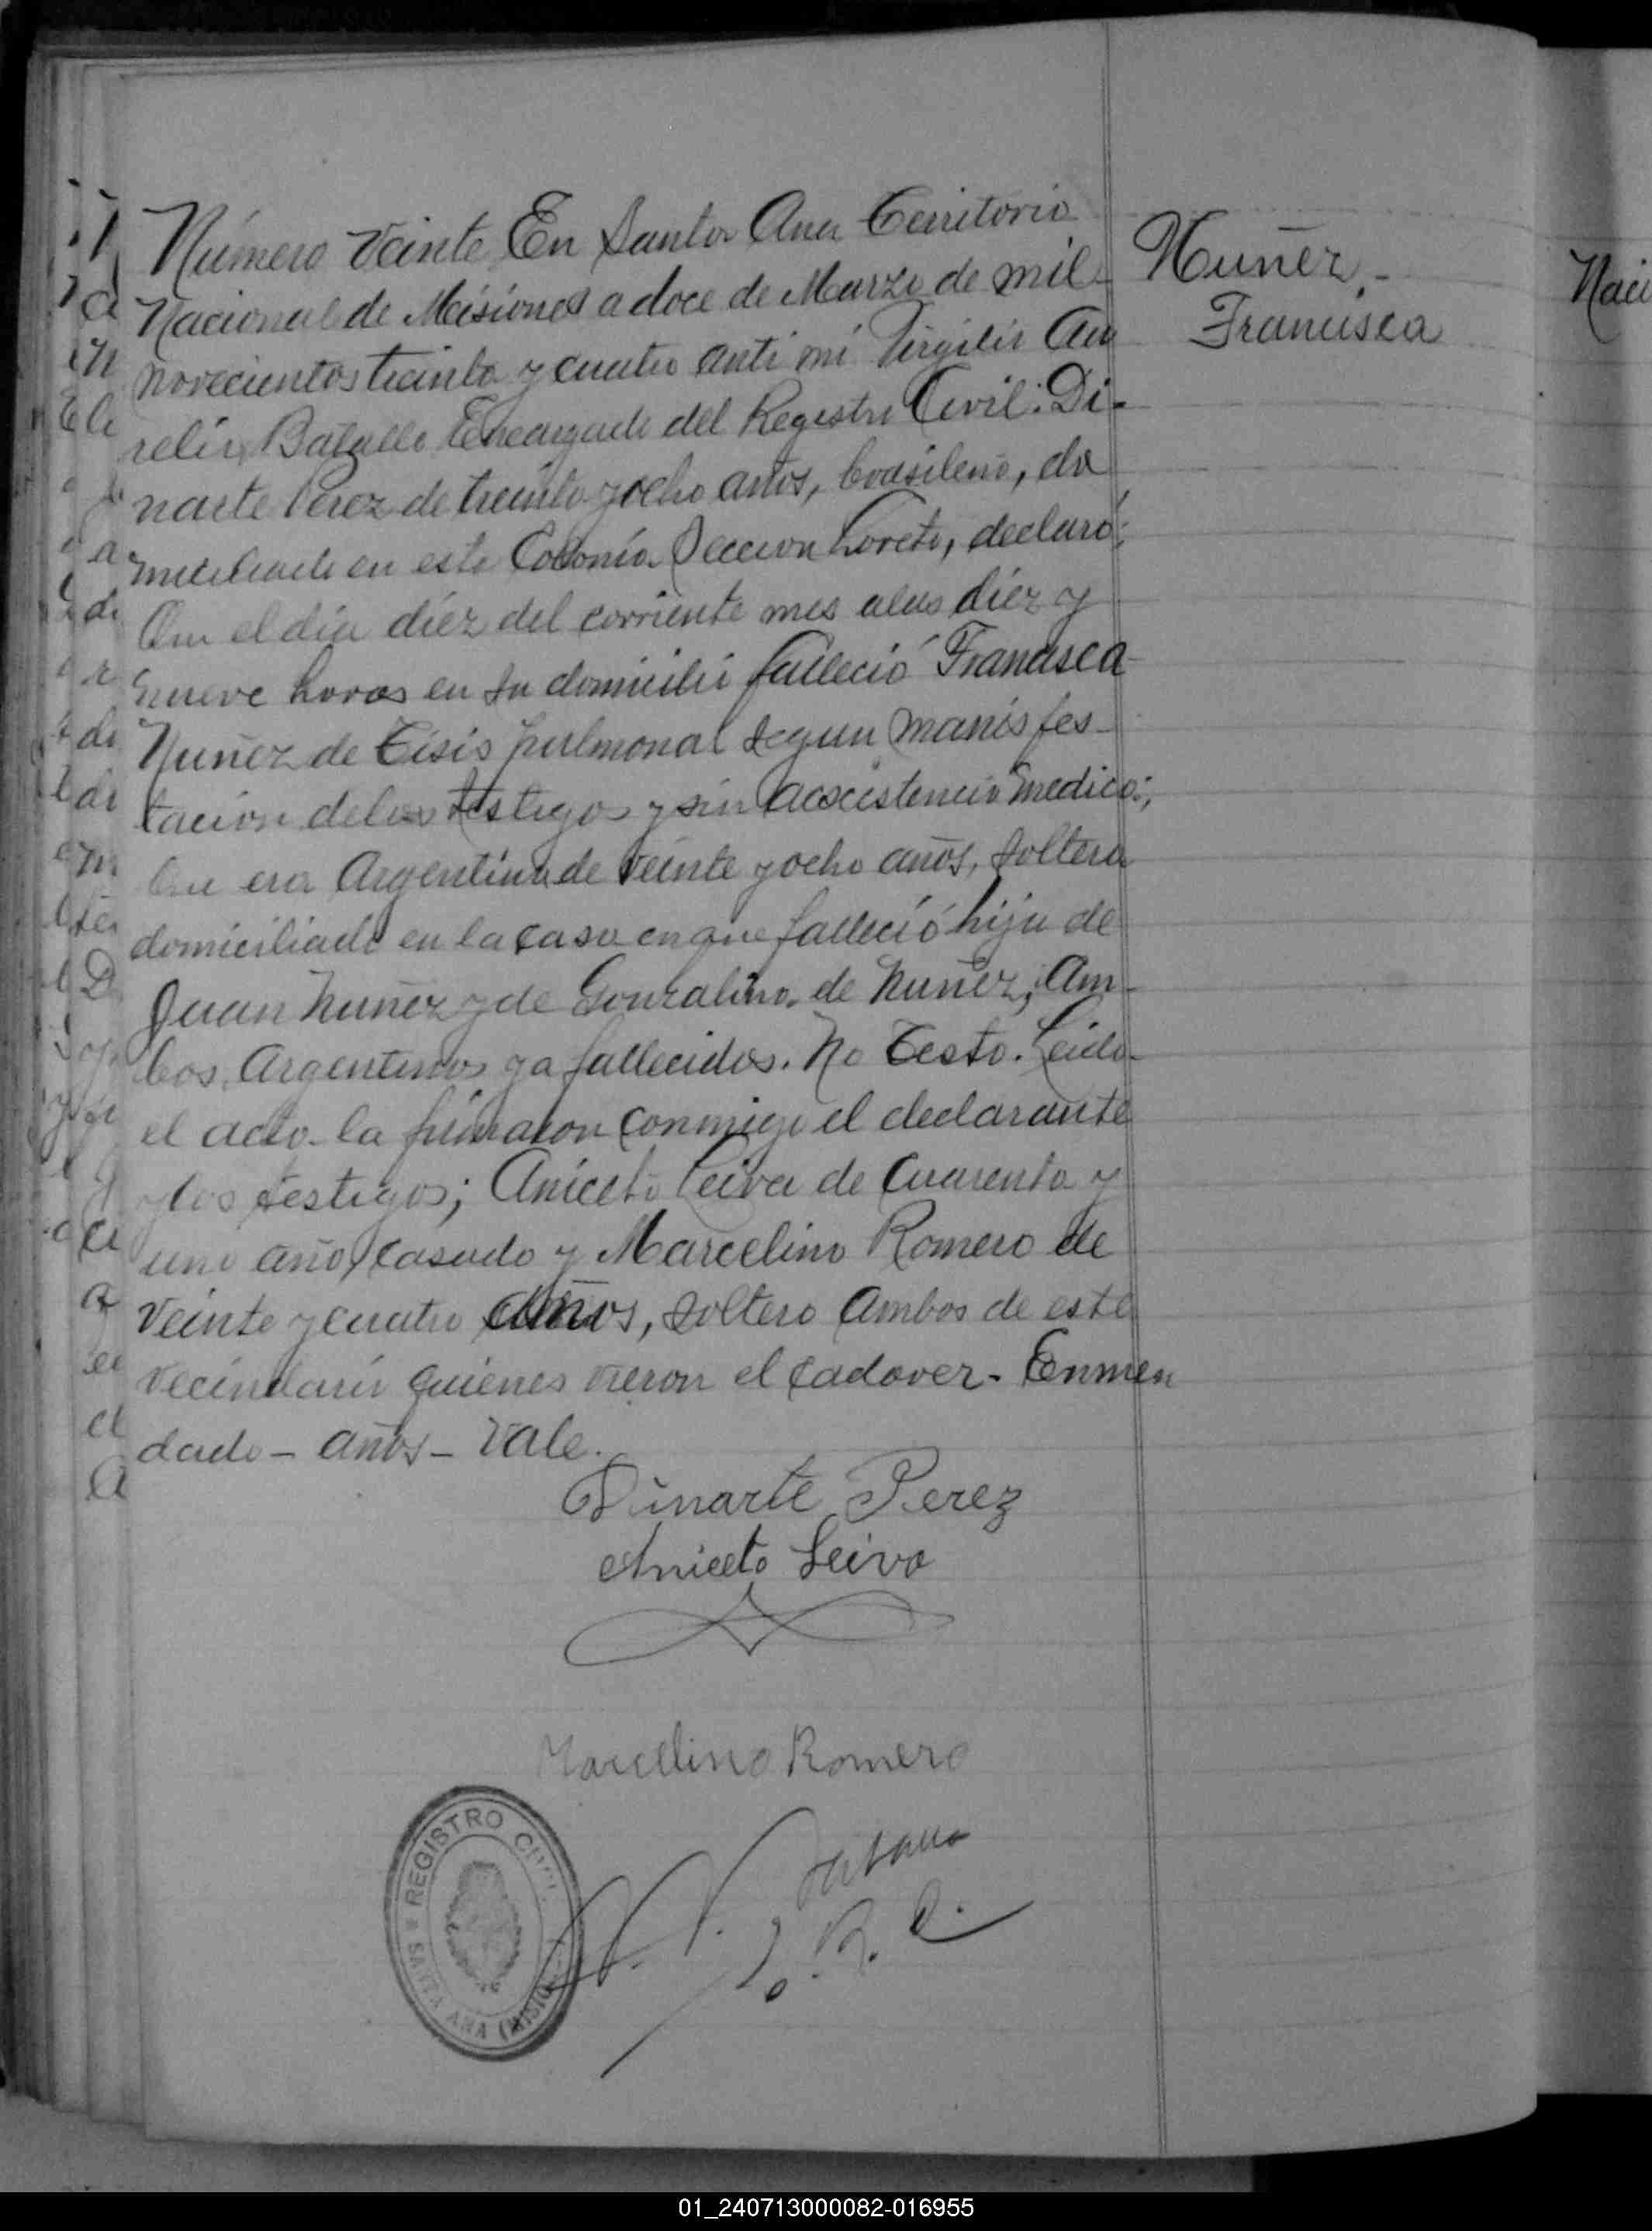 Número Veinte En Santa Ana Territorio
Nacional de Misiones a doce de Marzo de mil
novecientos treinta y cuatro ante mi Virgilio Au
relio Batalle Encargado del Registro Civil: Di-
narte Perez de treinta y ocho años, brasileno, do
miciliado en esta Colonia Seccion Loreto, declaró:
Que el dia diéz del corriente mes a las diéz y
nueve horas en su domicilio falleció Francisca
Nuñez de Tisis pulmonal segun manisfes-
tacion de los testigos y sin acsistencia medica;
Que era Argentina de veinte y ocho años, soltera
domiciliada en la casa en que falleció hija de
Juan Nuñez y de Gonzalina de Nuñez, Am-
bos Argentinos ya fallecidos. No Testo. Leida
el acta la firmaron conmigo el declarante
y los testigos; Aniceto Leiva de Cuarenta y
uno año, casado y Marcelino Romero de
veinte y cuatro años, soltero Ambos de este
vecindario quiénes vieron el cadaver - Enmen
dado - años - Vale.
Dinarte Perez
Aniceto Leiva
Marcelino Romero
REGISTRO CIVIL
SANTA ANA (MISIO
E. R. C.
Nuñez -
Francisca
Naci
01_240713000082-016955